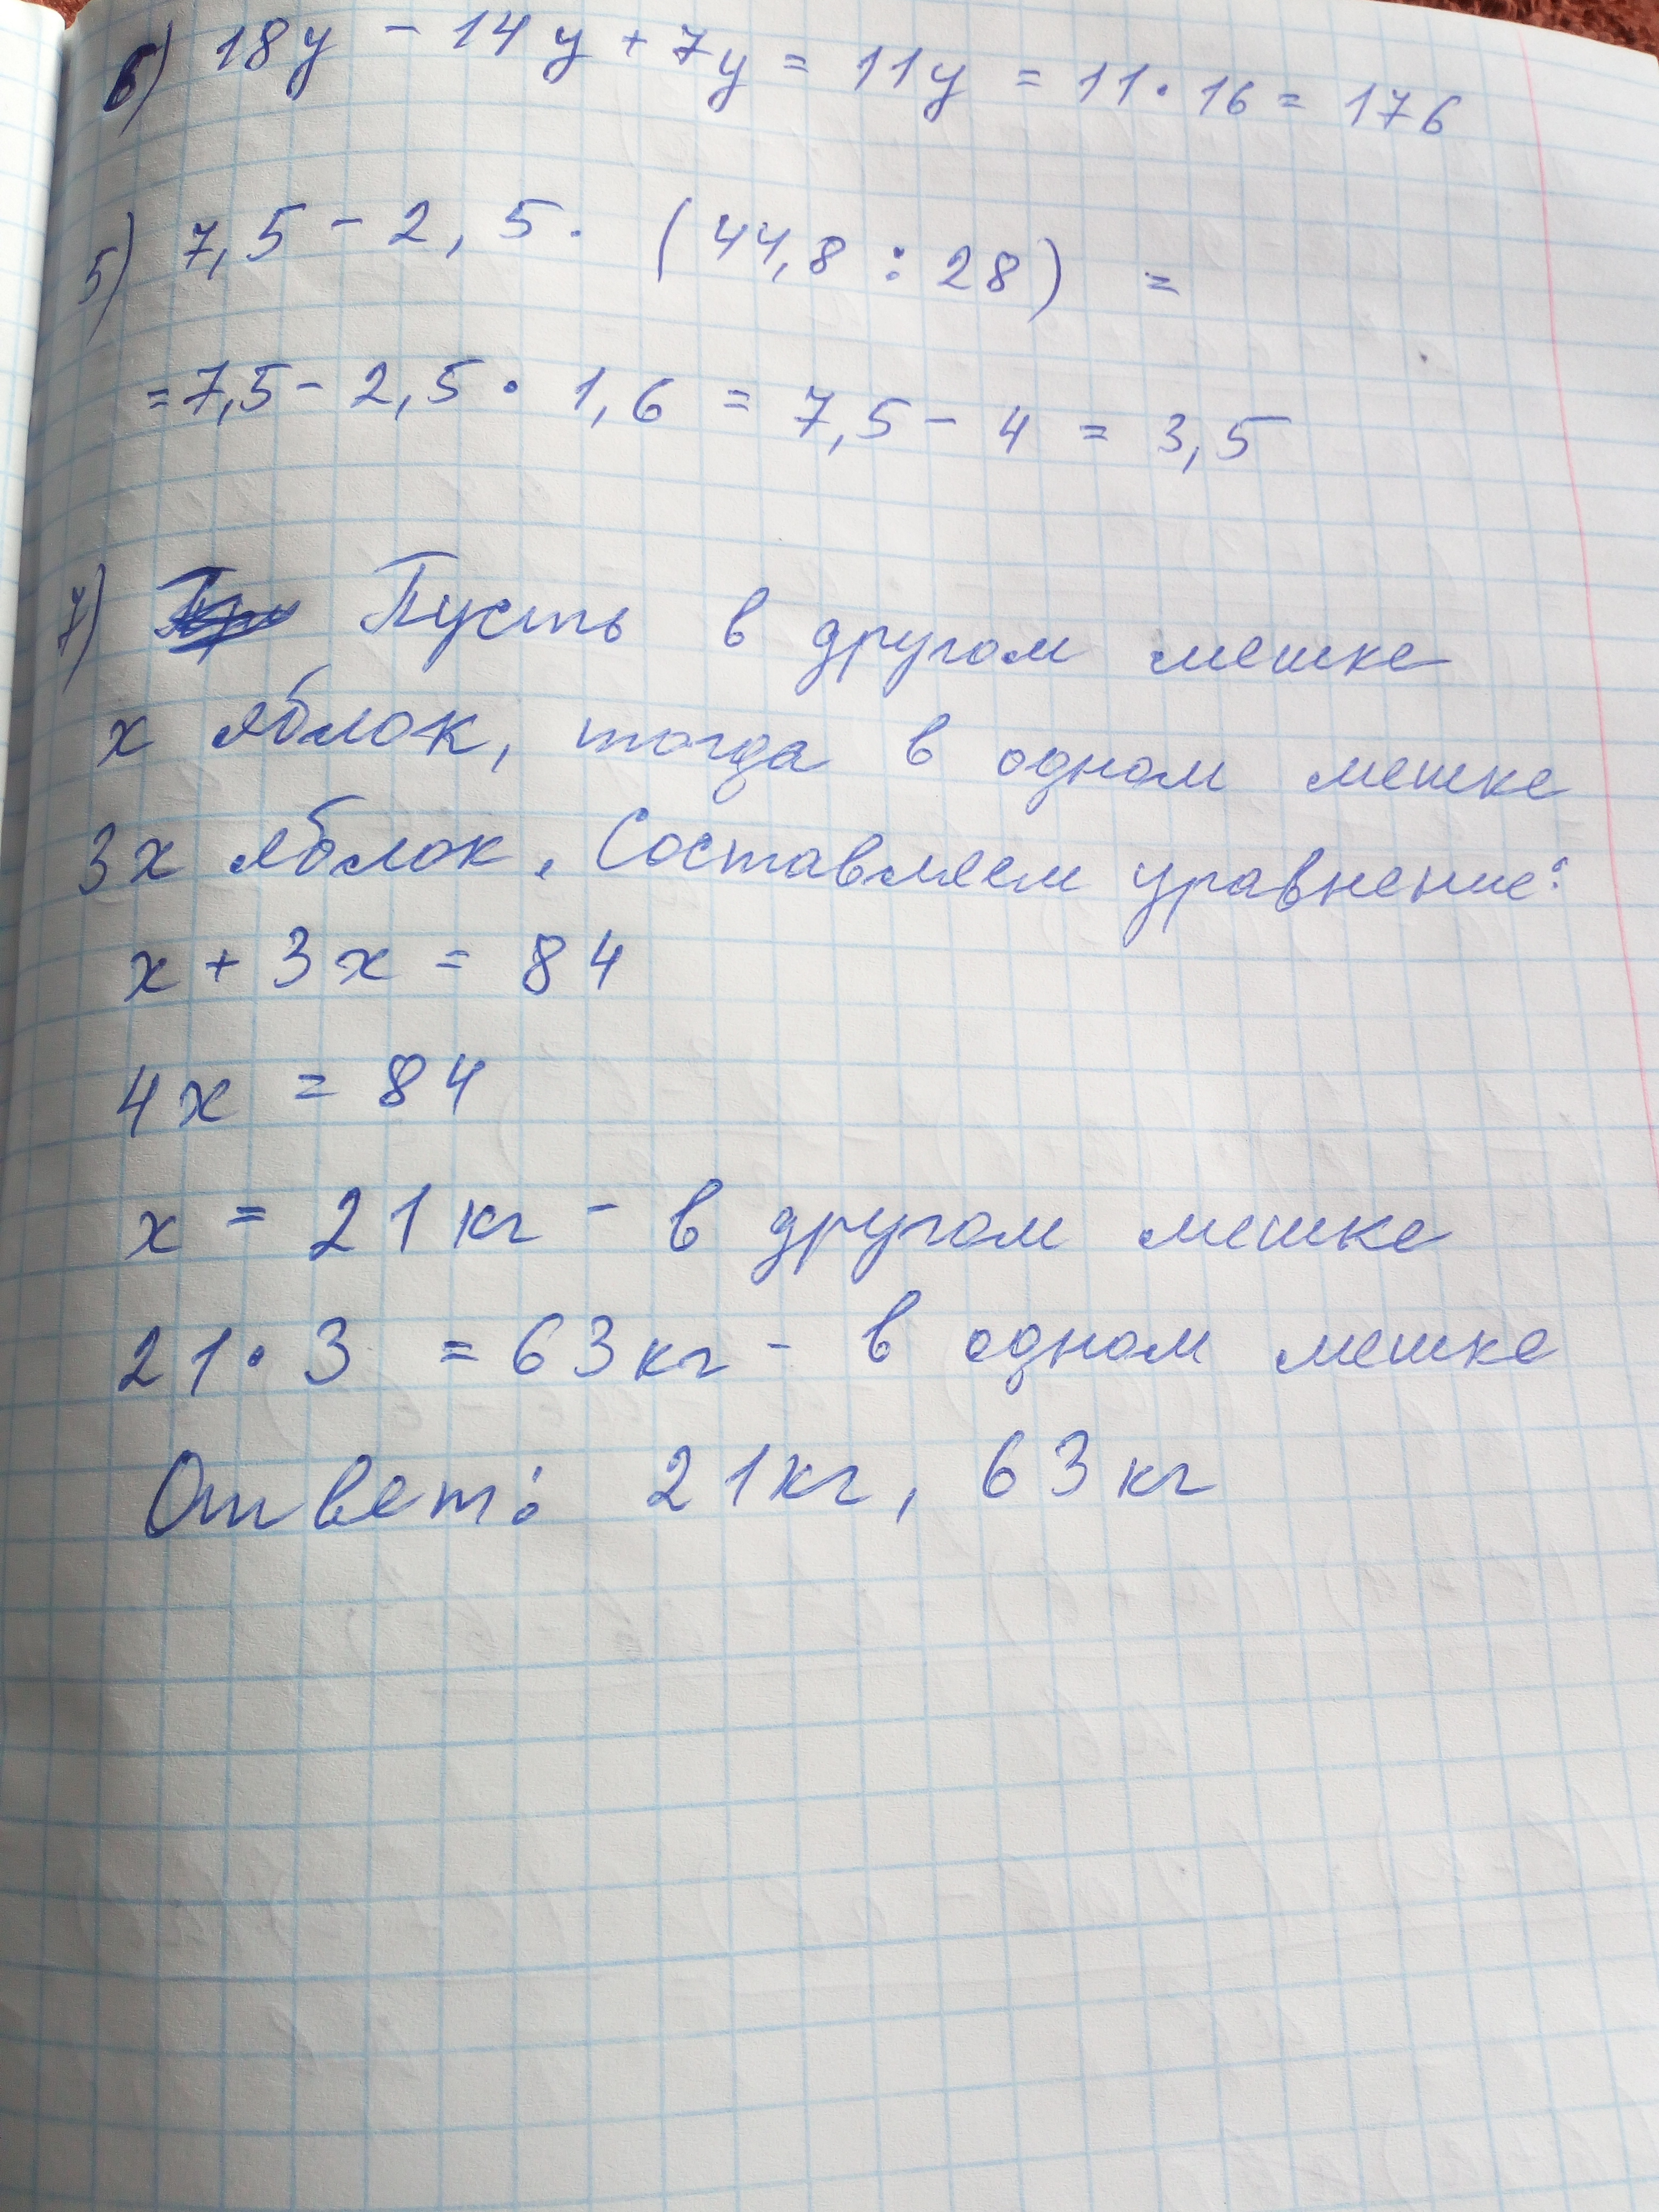 6) 18y - 14y + 7y = 11y = 11 · 16 = 176
5) 7,5 - 2,5 · (44,8 : 28) =
= 7,5 - 2,5 · 1,6 = 7,5 - 4 = 3,5
7) Пусть в другом мешке
x яблок, тогда в одном мешке
3x яблок. Составляем уравнение:
x + 3x = 84
4x = 84
x = 21 кг - в другом мешке
21 · 3 = 63 кг - в одном мешке
Ответ: 21 кг, 63 кг